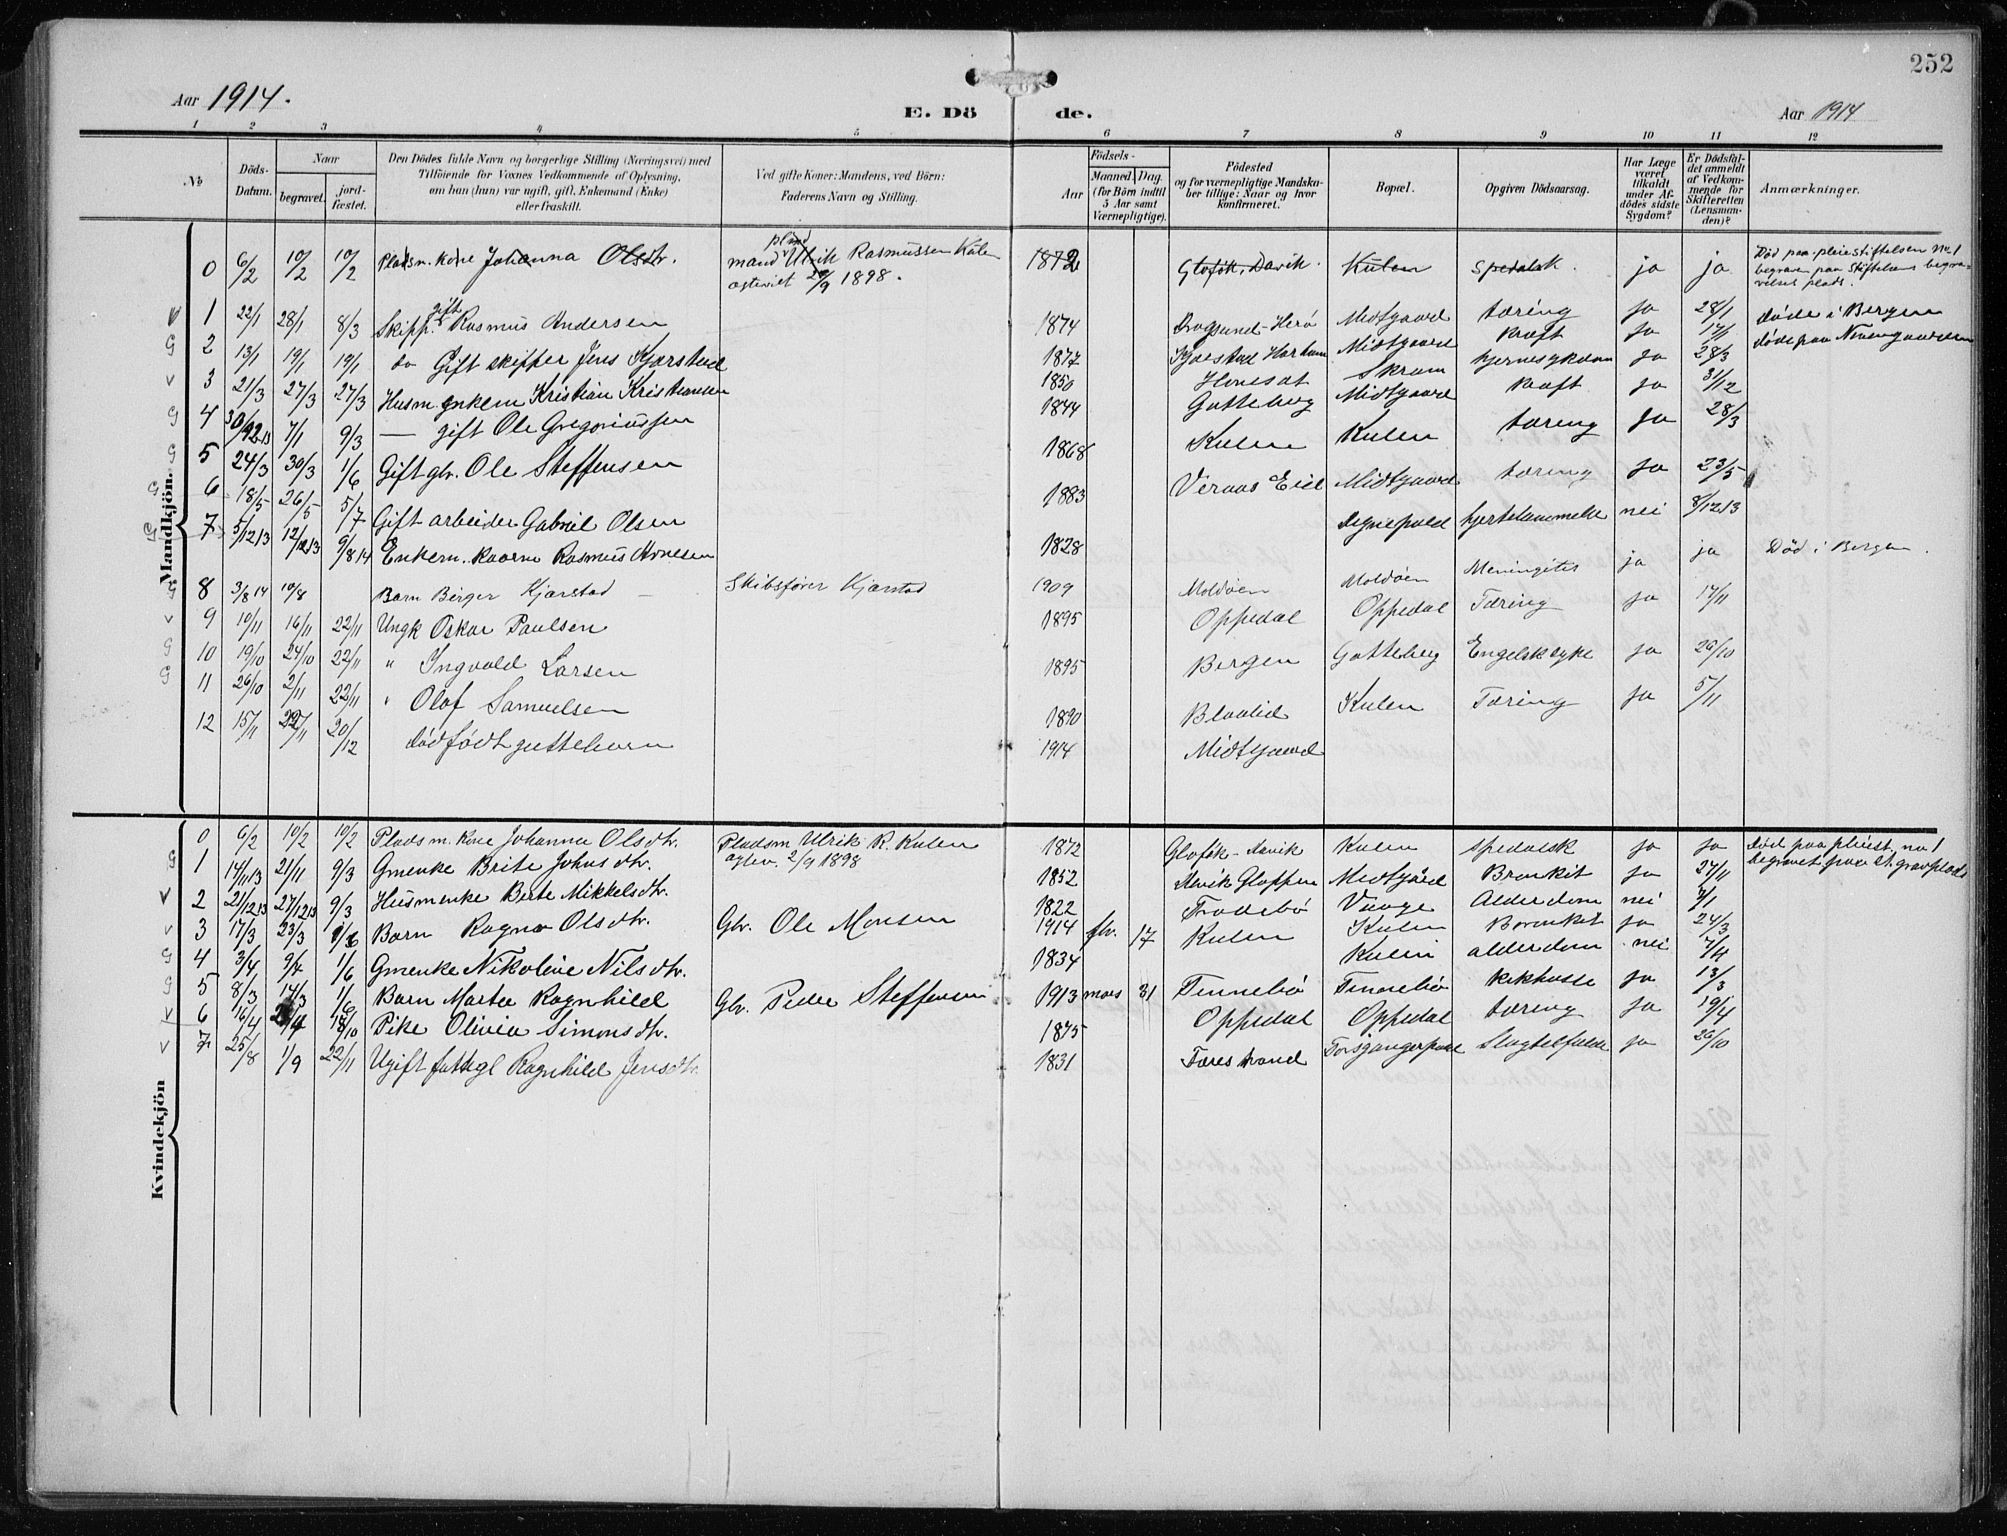 252
Aar 1914.
E. Dö de.
Aar 1914
1 2 3 4 5 6 7 8 9 10 11 12
No
Döds-Datum.
Naar
begravet.
jord-fæstet.
Den Dödes fulde Navn og borgerlige Stilling (Næringsvei) med
Tilföiende for Voxnes Vedkommende af Oplysning,
om han (hun) var ugift, gift, Enkemand (Enke)
eller fraskilt.
Ved gifte Koner: Mandens, ved Börn:
Faderens Navn og Stilling.
Födsels-
Aar
Maaned. Dag.
(for Börn indtil
5 Aar samt
Værnepligtige).
Födested
og for værnepligtige Mandska-
ber tillige: Naar og hvor
konfirmeret.
Bopæl.
Opgiven Dödsaarsag.
Har Læge
været
tilkaldt
under Af-
dödes sidste
Sygdom?
Er Dödsfal-
det anmeldt
af Vedkom-
mende for
Skifteretten
(Lensman-
den)?
Anmærkninger.
Mandkjön.
0 6/2 10/2 10/2 Pladsm. kone Johanna Olsdtr. pladsmand Ulrik Rasmussen Kulen 1872 Glofök, Davik Kulen Spedalsk. ja ja Död paa pleiestiftelsen No 1
1898. begravet paa Stiftelsens begravelses plads.
1 22/1 28/1 8/3 Skipp. gift Rasmus Andersen 1874 Dragsund-Herö Midtgaard tæring ja 28/1 döde i Bergen
2 13/1 19/1 19/1 do Gift skipper Jens Kjærstad 1877 Kjærstad Harham Midtgaard kræft ja 17/1 döde paa Nausgaarden
3 21/3 27/3 27/3 Husm. enkem Kristian Kristiansen 1850 Skram hjernesykdom ja 28/3
4 30/12 13 7/1 9/3 — gift Ole Gregoriussen 1844 Gotteberg Midtgaard kræft ja 31/12
5 24/3 30/3 1/6 Gift gbr. Ole Steffensen 1868 Kulen Kulen tæring ja 28/3
6 18/5 26/5 5/7 Gift arbeider Gabriel Olsen 1883 Veraas Eid Midtgaard tæring ja 23/5
7 5/12 13 12/12 13 9/8 14 Enkem. kaarm Rasmus Arnesen 1828 hjertelammelse nei 8/12 13
8 3/8 14 10/8 Barn Birger Kjærstad — Skibsförer Kjærstad 1909 Moldöen Moldöen Meningites ja ja Död i Bergen.
9 10/11 16/11 22/11 Ungk Oskar Paulsen 1895 Oppedal Oppedal Tæring ja 17/11
10 19/10 24/10 22/11 " Ingvald Larsen 1895 Bergen Gotteberg Engelsk syke ja 26/10
11 26/10 2/11 22/11 " Olaf Samuelsen 1890 Blaalid Kulen Tæring ja 5/11
12 15/11 22/11 20/12 dödfödt guttebarn 1914 Midtgaard
Kvindekjön
0 6/2 10/2 10/2 Pladsm. kone Johanna Olsdtr. Pladsm Ulrik R. Kulen 1872 Glofök - Davik Kulen Spedalsk ja ja död paa pleiest. no 1
2/9 1898 begravet paa st. gravplads
1 14/11 13 21/11 9/3 Gmenke Brite Johnsdtr. 1852 Davik Gloppen Midtgård Bronkit ja 27/11
2 21/12 13 27/12 13 9/3 Husmenke Berte Mikkelsdtr. 1822 Vaage Alderdom nei 7/1
3 17/3 23/3 1/6 Barn Ragna Olsdtr. Gbr. Ole Monsen 1914 fbr. 17 Kulen Kulen Bronkit ja 24/3
4 3/4 9/4 1/6 Gmenke Nikoline Nilsdtr. 1834 Kulen alderdom nei 7/4
5 8/3 14/3 1/6 Barn Marta Ragnhild Gbr. Peder Steffensen 1913 mars 31 Tennebö Tennebö kikhoste ja 13/3
6 16/4 18/10 Pike Olivia Simonsdtr. 1875 Oppedal Oppedal tæring ja 19/4
7 25/8 1/9 22/11 Ugift fattigl Ragnhild Jensdtr. 1831 Færestrand Slagtelfælde ja 26/10